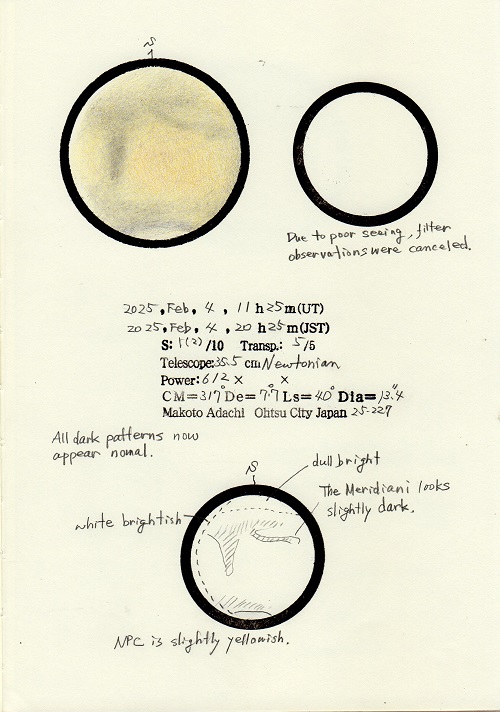 S
Due to poor seeing, filter
observations were canceled.
2025, Feb, 4, 11h25m(UT)
2025, Feb, 4, 20h25m(JST)
S: 1(2)/10 Transp.: 5/5
Telescope: 35.5 cm Newtonian
Power: 612 × ×
CM=317° De=7.7° Ls=40° Dia=13.4"
Makoto Adachi Ohtsu City Japan 25-227
All dark patterns now
appear nomal.
S
dull bright
The Meridiani looks
slightly dark.
white brightish
NPC is slightly yellowish.